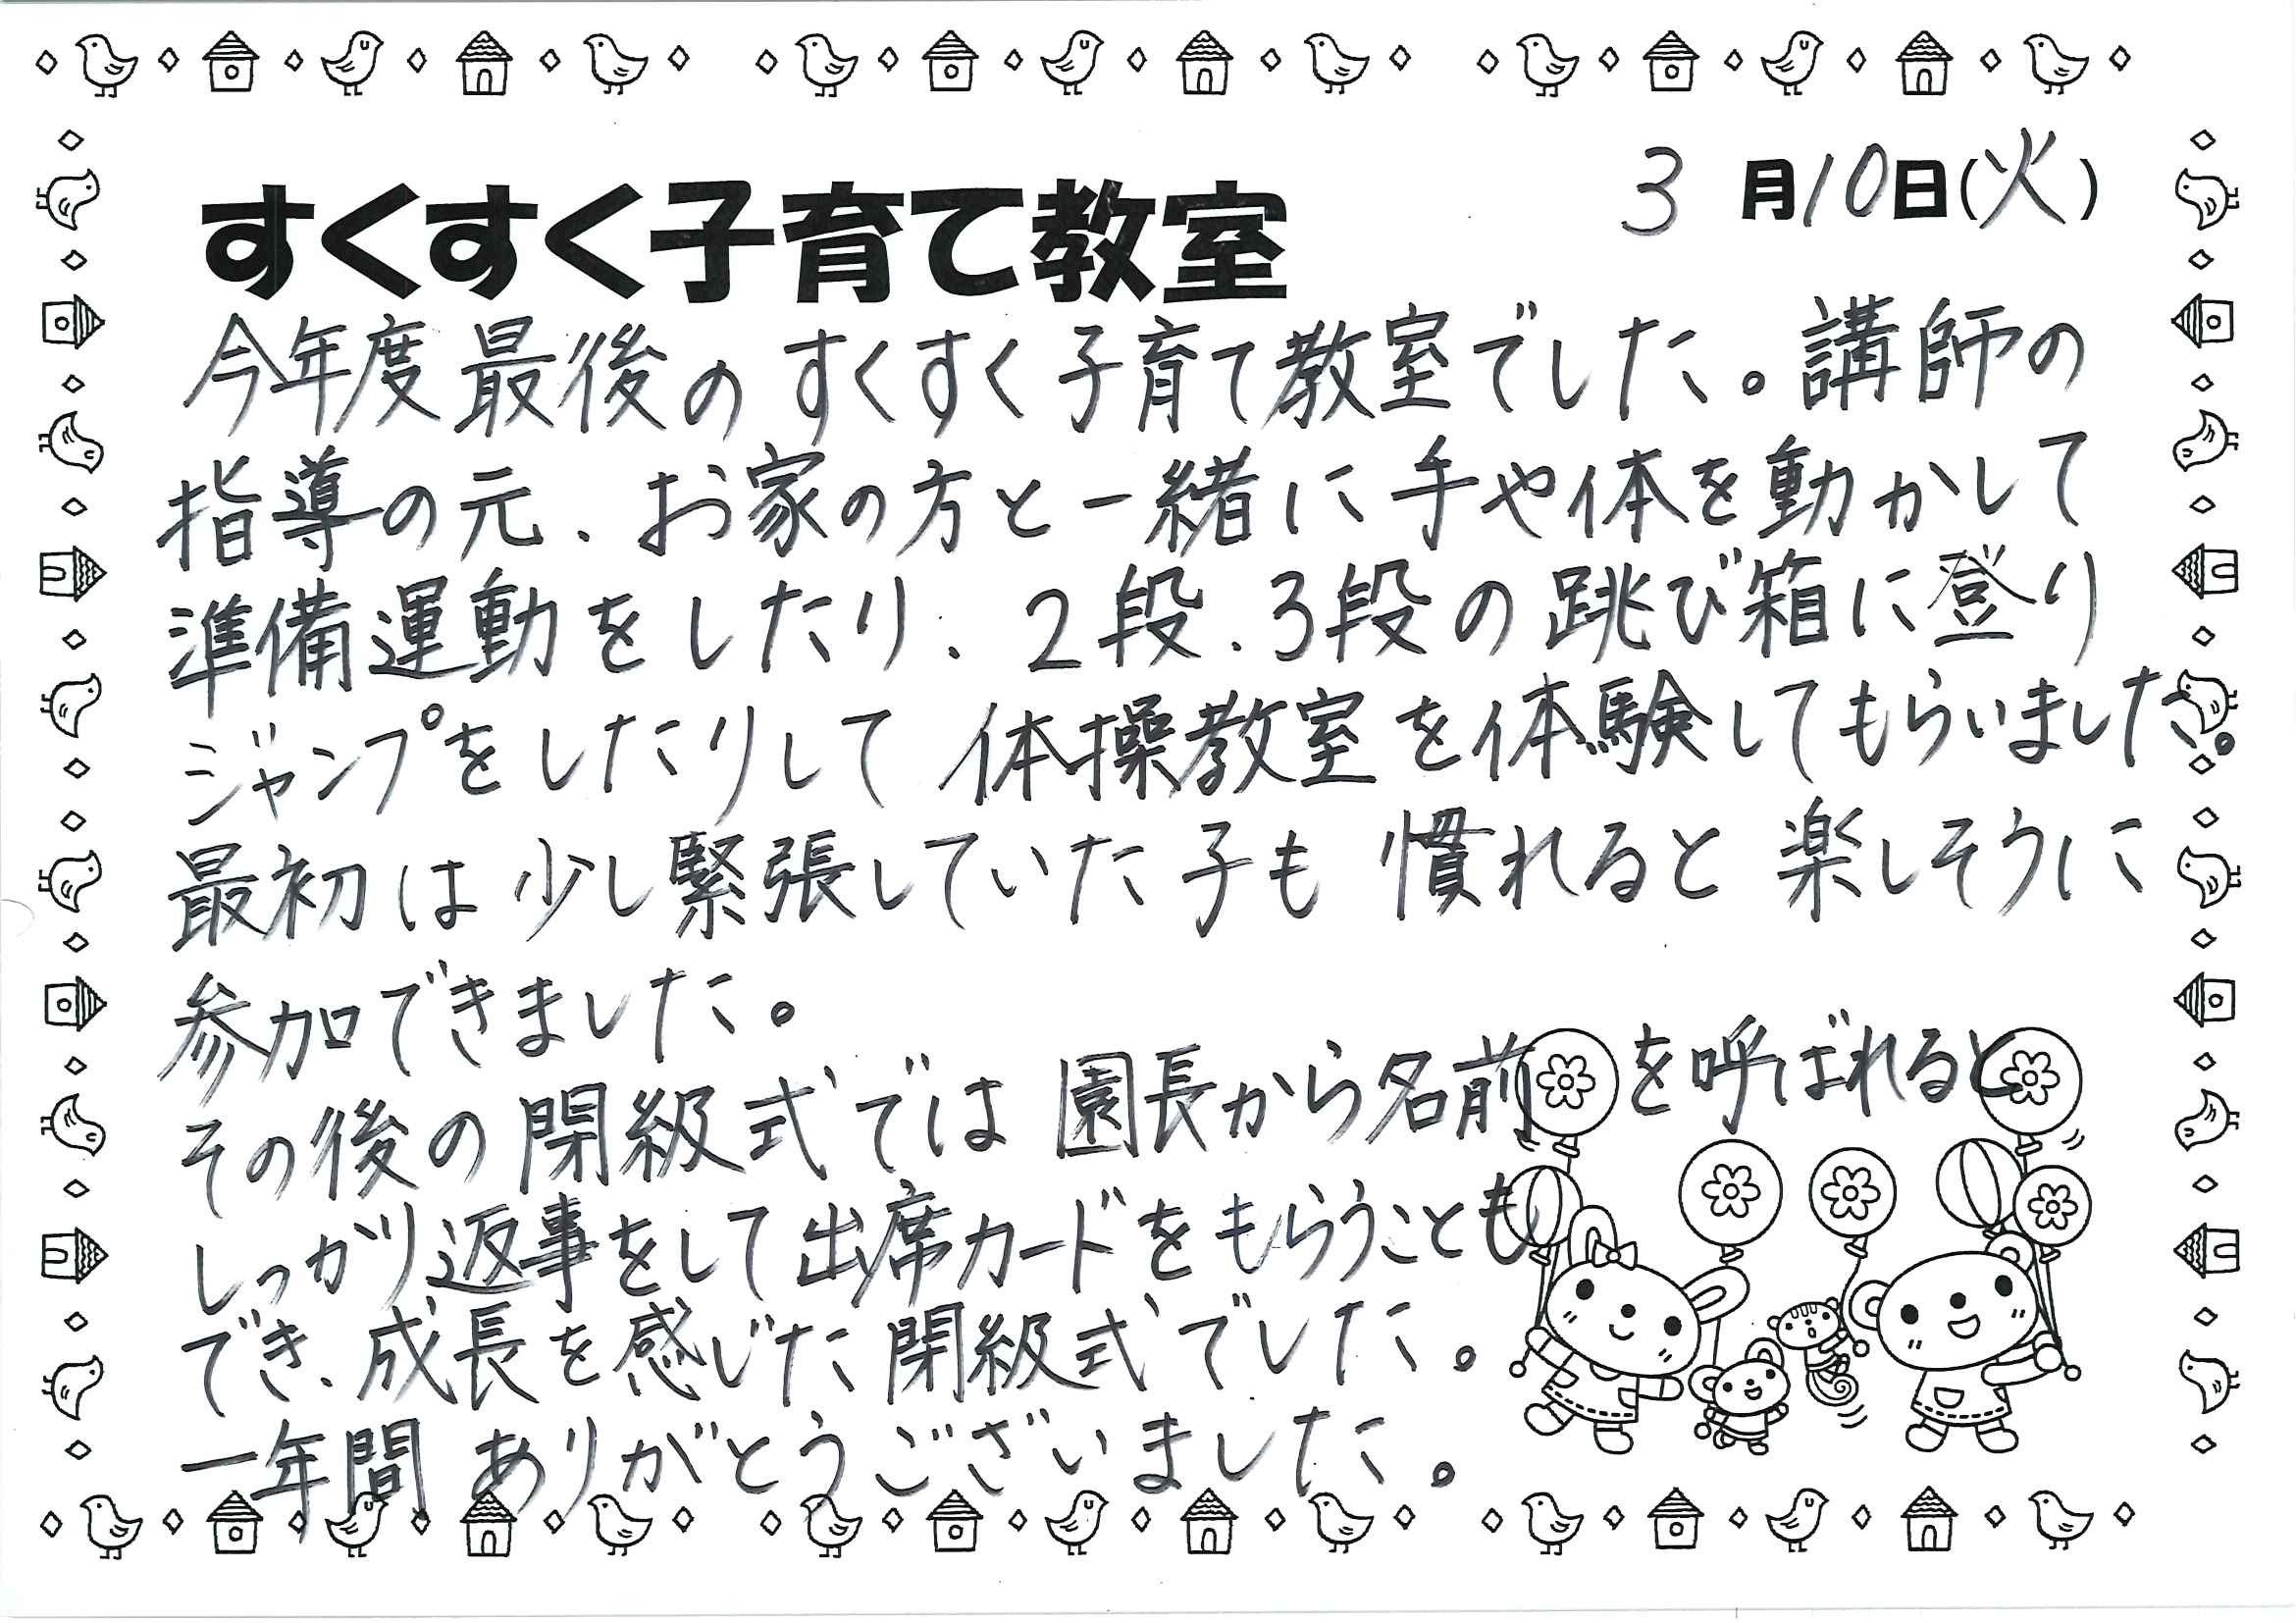 3月10日(火)
すくすく子育て教室
今年度最後のすくすく子育て教室でした。講師の
指導の元、お家の方と一緒に手や体を動かして
準備運動をしたり、2段、3段の跳び箱に登り
ジャンプをしたりして体操教室を体験してもらいました。
最初は少し緊張していた子も慣れると楽しそうに
参加できました。
その後の閉級式では園長から名前を呼ばれると
しっかり返事をして出席カードをもらうことも
でき、成長を感じた閉級式でした。
一年間ありがとうございました。